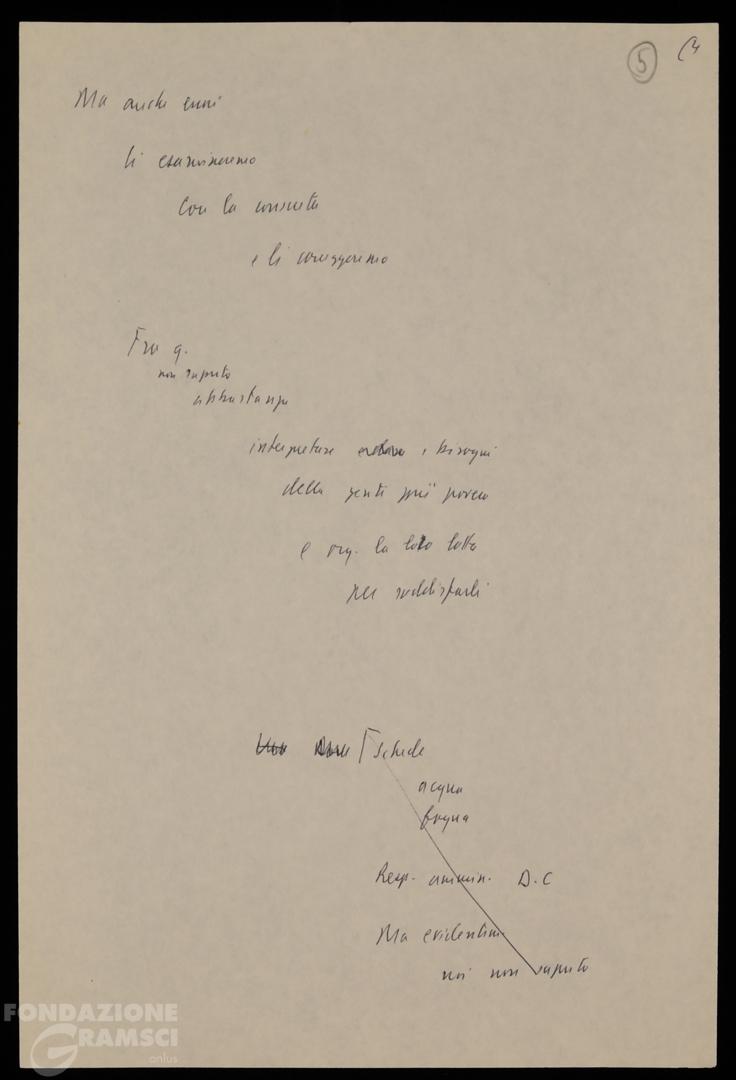 5
Ma anche errori
li esamineremo
con la consueta
e li correggeremo
Fra q.
non saputo
abbastanza
interpretare i bisogni
della gente più povera
e org. la loro lotta
per soddisfarli
Schede
acqua
fogna
Resp. ammin. D.C
Ma evidentem.
noi non saputo
FONDAZIONE
GRAMSCI
onlus